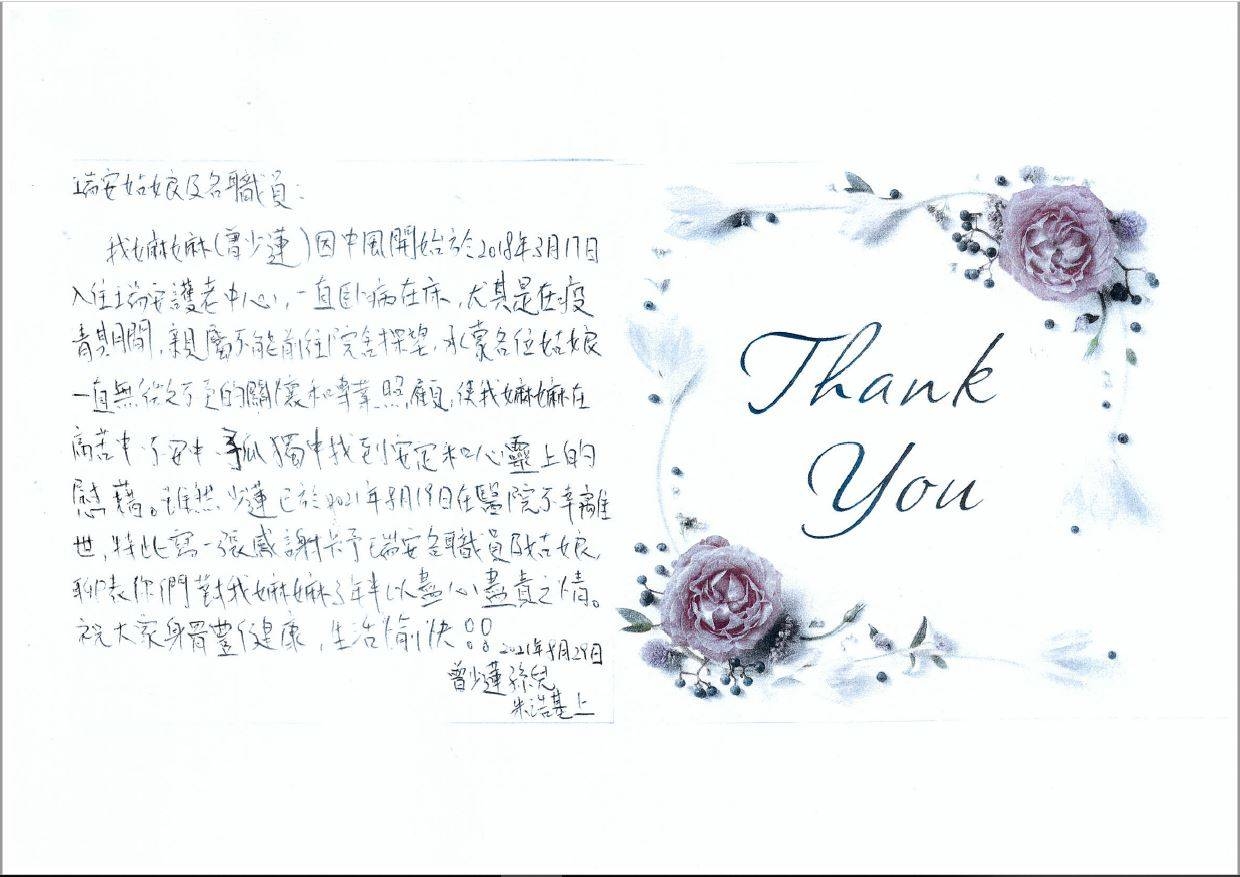 瑞安姑娘及各職員:
我嫲嫲(曾少蓮)因中風開始於2018年3月17日
入住瑞安護老中心,一直臥病在床,尤其是在疫
情期間,親屬不能前往院舍探望,承蒙各位姑娘
一直無微不至的關懷和專業照顧,使我嫲嫲在
病苦中不安中孤獨中找到安定和心靈上的
慰藉。雖然少蓮已於2021年8月19日在醫院不幸離
世,特此寫一張感謝卡予瑞安各職員及姑娘,
聊表你們對我嫲嫲3年半以盡心盡責之情。
祝大家身體健康,生活愉快!!
2021年8月29日
曾少蓮孫兒
朱浩基上
Thank
You